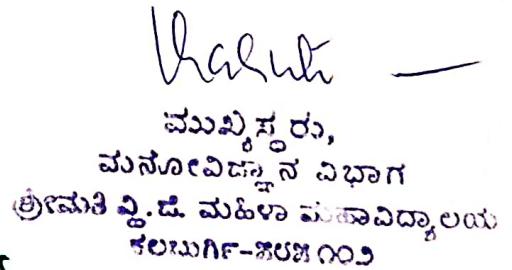 ಮುಖ್ಯಸ್ಥರು,
ಮನೋವಿಜ್ಞಾನ ವಿಭಾಗ
ಶ್ರೀಮತಿ ವ್ಹಿ.ಜಿ. ಮಹಿಳಾ ಮಹಾವಿದ್ಯಾಲಯ
ಕಲಬುರ್ಗಿ-೫೮೫೧೦೨